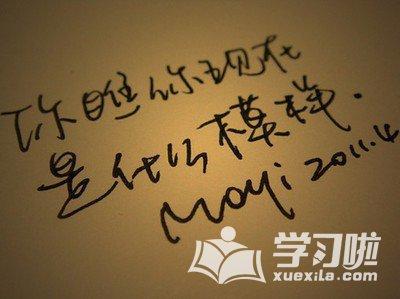 你瞧你现在
是什么模样.
Moyi 2011.4
学习啦
xuexila.com